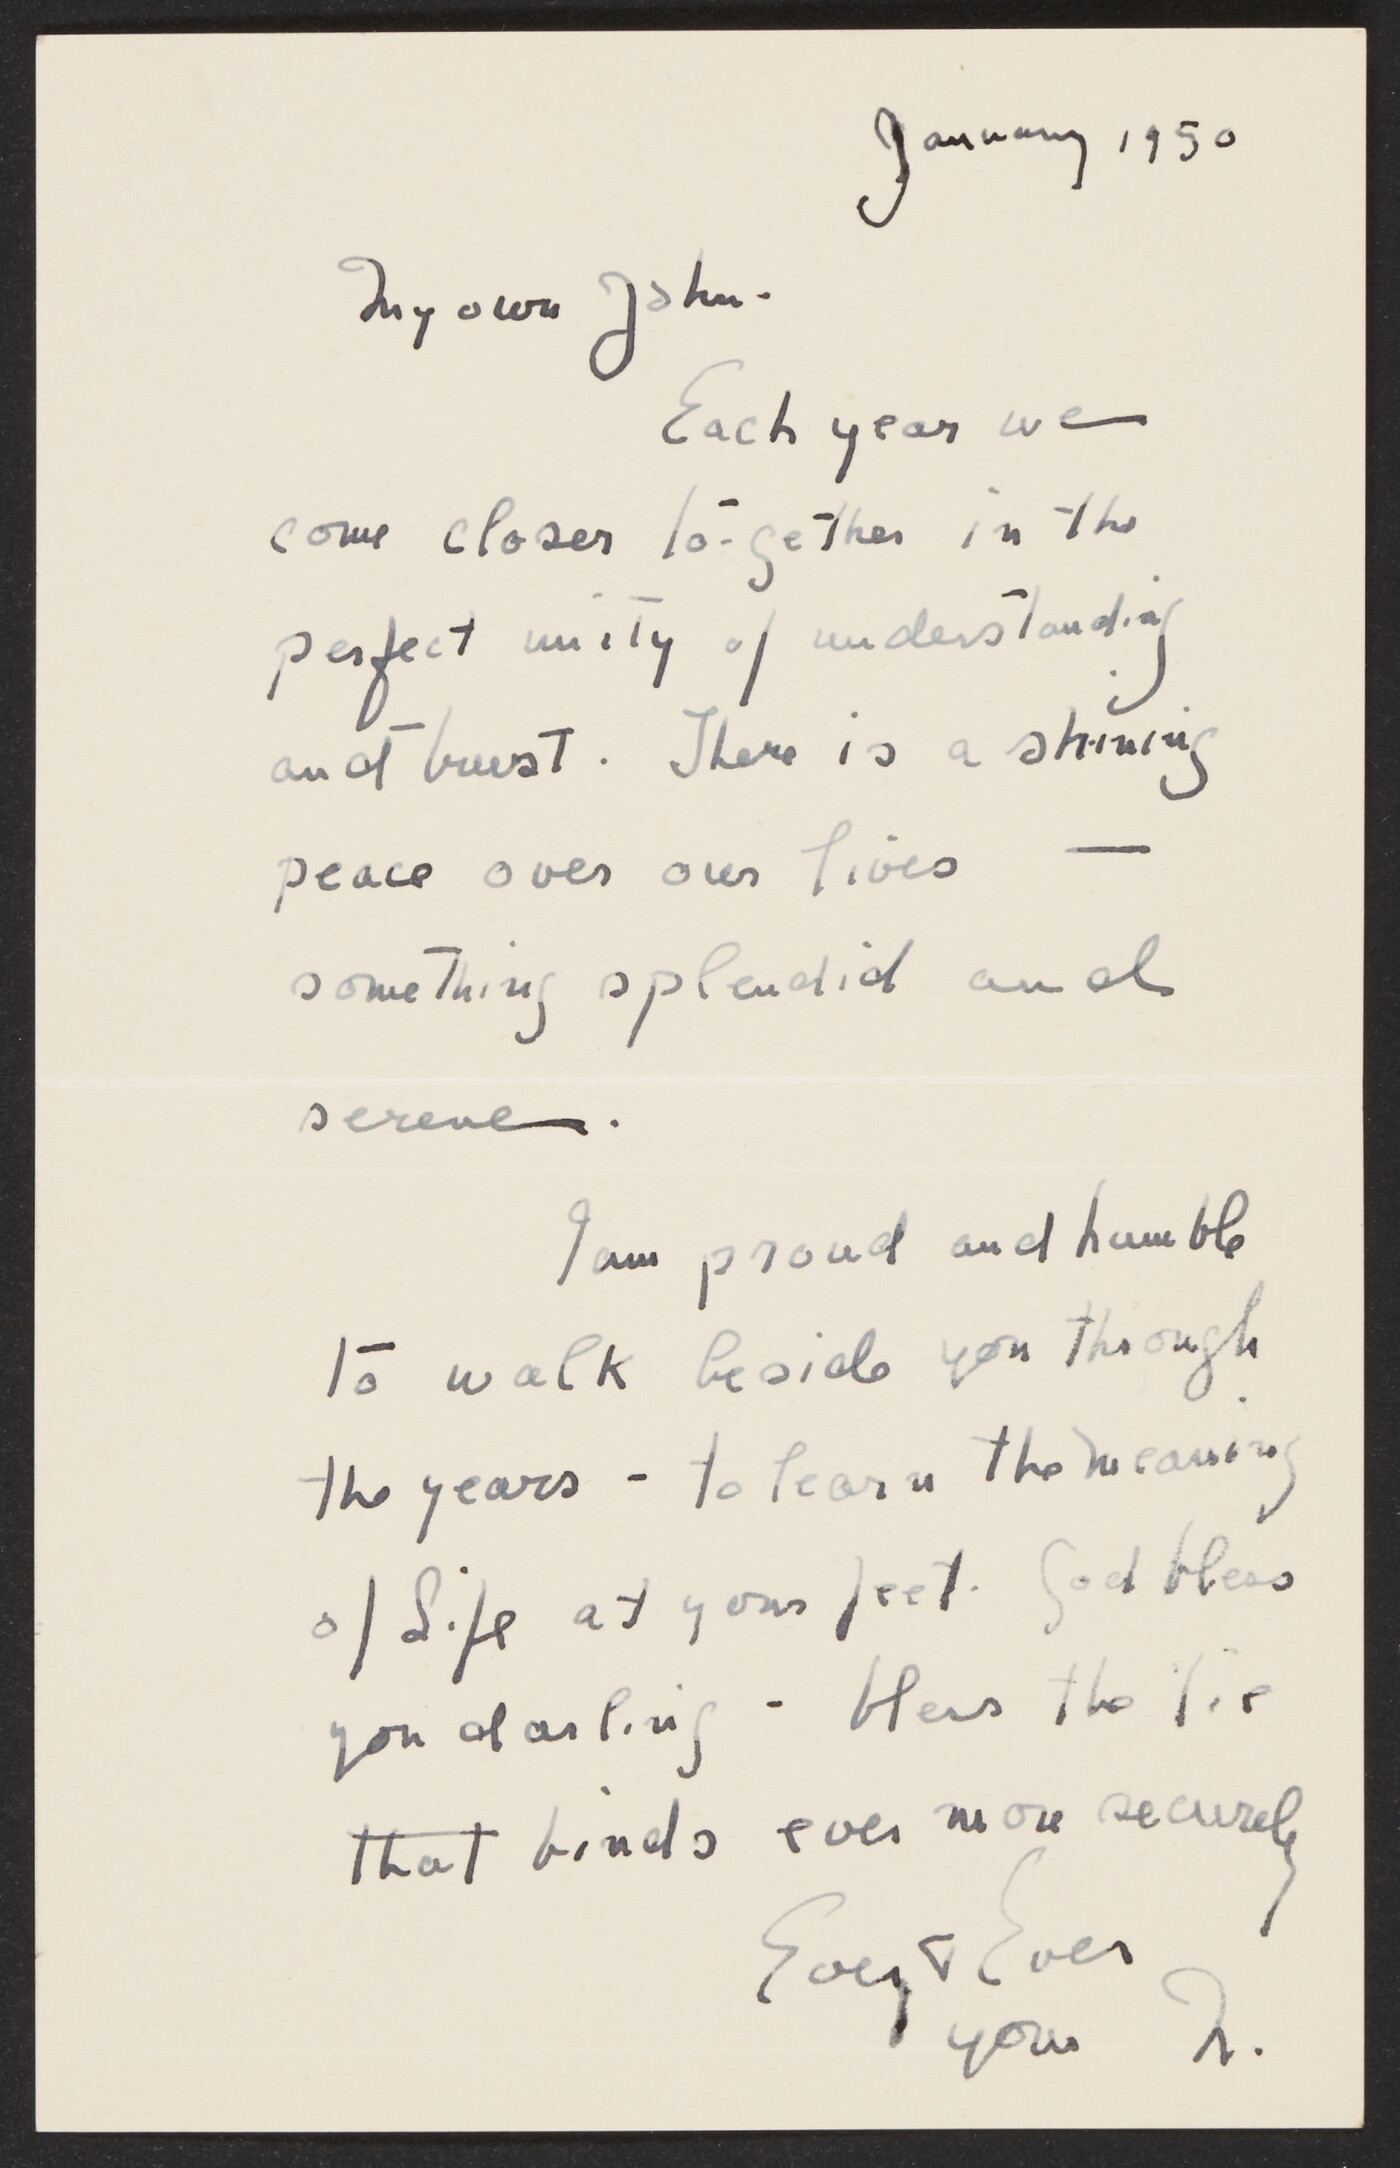 January 1950
My own John.
Each year we
come closer to-gether in the
perfect unity of understanding
and trust. There is a shining
peace over our lives —
something splendid and
serene.
I am proud and humble
to walk beside you through
the years - to learn the meaning
of Life at your feet. God bless
you darling - bless the tie
that binds ever more securely
Ever & Ever
your N.